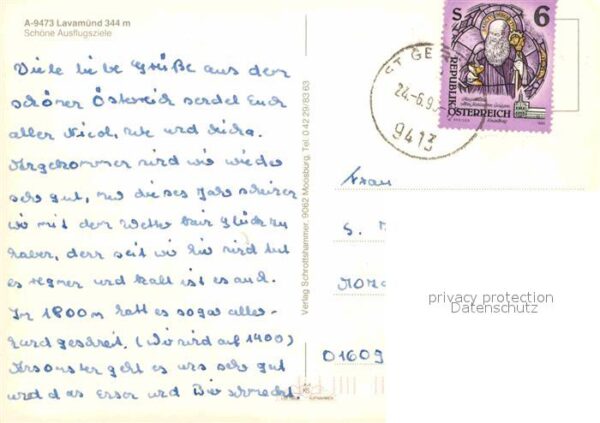 A-9473 Lavamünd 344 m
Schöne Ausflugsziele
Viele liebe Grüße aus dem
schönen Österreich sendet Euch
allen Nicol, Ute und
Angekommen sind wir wieder
sehr gut, nur dieses Jahr scheinen
wir mit dem Wetter kein Glück zu
haben, denn seit wir hier sind tut
es regnen und kalt ist es auch.
In 1800m hatt es sogar aller-
hand geschneit. (Wir sind auf 1400)
Ansonsten geht es uns sehr gut
und das Essen und Bier schmeckt
Verlag Schrottshammer, 9062 Moosburg, Tel. 0 42 29/83 63
ST GE
24.-6.9
9413
S 6
REPUBLIK
ÖSTERREICH
Frau
S.
01609
privacy protection
Datenschutz